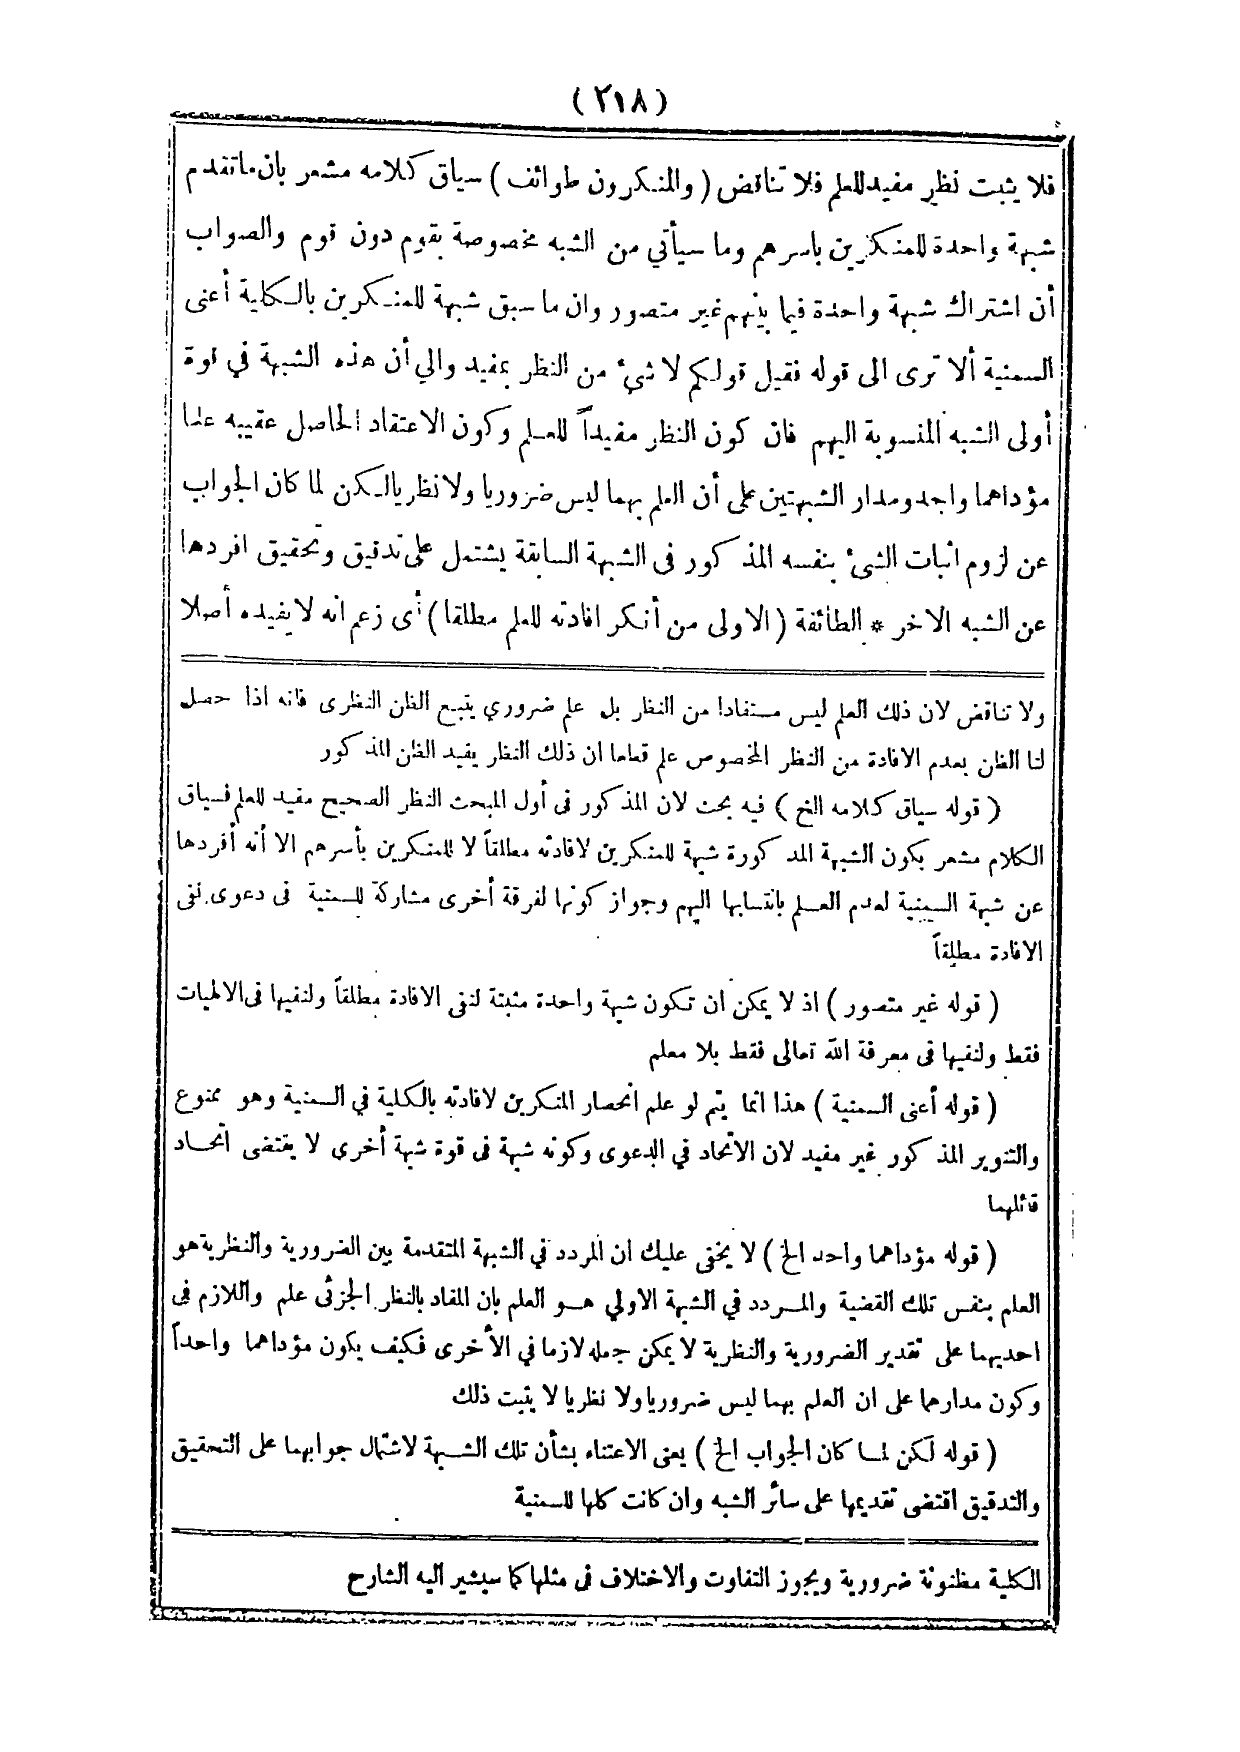 (٢١٨)
فلا يثبت نظر مفيد للعلم فلا تناقض ( والمنكرون طوائف ) سياق كلامه مشعر بان ماتقدم
شبهة واحدة للمنكرين باسرهم وما سيأتي من الشبه مخصوصة بقوم دون قوم والصواب
أن اشتراك شبهة واحدة فيما بينهم غير متصور وان ما سبق شبهة للمنكرين بالكلية أعنى
السمنية ألا ترى الى قوله فقيل قولكم لا شئ من النظر بمفيد والي أن هذه الشبهة في قوة
أولى الشبه المنسوبة اليهم فان كون النظر مفيداً للعلم وكون الاعتقاد الحاصل عقيبه علما
مؤداهما واحد ومدار الشبهتين على أن العلم بهما ليس ضروريا ولا نظريا لكن لما كان الجواب
عن لزوم اثبات الشئ بنفسه المذكور فى الشبهة السابقة يشتمل على تدقيق وتحقيق افردها
عن الشبه الاخر * الطائفة ( الاولى من أنكر افادته للعلم مطلقا ) أى زعم انه لا يفيده أصلا
ولا تناقض لان ذلك العلم ليس مستفادا من النظر بل علم ضروري يتبع الظن النظرى فانه اذا حصل
لنا الظن بعدم الافادة من النظر المخصوص علم قطعا ان ذلك النظر يفيد الظن المذكور
( قوله سياق كلامه الخ ) فيه بحث لان المذكور فى أول المبحث النظر الصحيح مفيد للعلم فسياق
الكلام مشعر بكون الشبهة المذكورة شبهة للمنكرين لافادته مطلقاً لا للمنكرين بأسرهم الا أنه أفردها
عن شبهة السمنية لعدم العلم بانتسابها اليهم وجواز كونها لفرقة أخرى مشاركة للسمنية فى دعوى نفى
الافادة مطلقاً
( قوله غير متصور ) اذ لا يمكن ان تكون شبهة واحدة مثبتة لنفى الافادة مطلقاً ولنفيها فى الالهيات
فقط ولنفيها فى معرفة الله تعالى فقط بلا معلم
( قوله أعنى السمنية ) هذا انما يتم لو علم انحصار المنكرين لافادته بالكلية في السمنية وهو ممنوع
والتنوير المذكور غير مفيد لان الاتحاد في الدعوى وكونه شبهة فى قوة شبهة أخرى لا يقتضى اتحاد
قائلهما
( قوله مؤداهما واحد الخ ) لا يخفى عليك ان المردد في الشبهة المتقدمة بين الضرورية والنظرية هو
العلم بنفس تلك القضية والمردد في الشبهة الاولي هو العلم بان المفاد بالنظر الجزئى علم واللازم فى
احديهما على تقدير الضرورية والنظرية لا يمكن جعله لازما في الأخرى فكيف يكون مؤداهما واحداً
وكون مدارهما على ان العلم بهما ليس ضروريا ولا نظريا لا يثبت ذلك
( قوله لكن لما كان الجواب الخ ) يعنى الاعتناء بشأن تلك الشبهة لاشتمال جوابهما على التحقيق
والتدقيق اقتضى تقديمها على سائر الشبه وان كانت كلها للسمنية
الكلية مظنونة ضرورية ويجوز التفاوت والاختلاف فى مثلها كما سيشير اليه الشارح